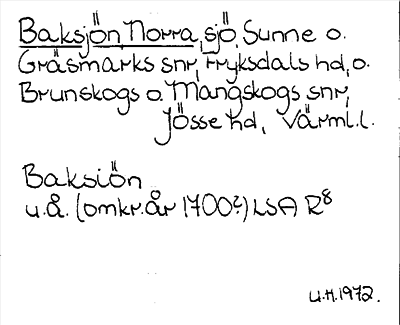 Baksjön, Norra, sjö, Sunne o.
Gräsmarks snr, Fryksdals hd, o.
Brunskogs o. Mangskogs snr,
Jösse hd, Värml.l.
Baksiön
u.å. (omkr. år 1700?) LSA R8
U.H. 1972.